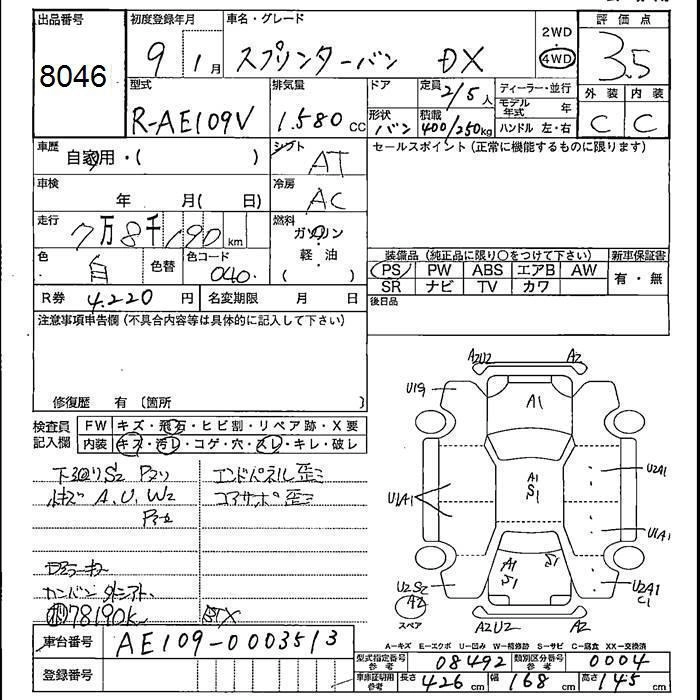 出品番号 初度登録年月 車名・グレード 評価点
8046 9 1月 スプリンターバン DX 2WD 4WD 3.5
型式 排気量 ドア 定員 2/5人 ディーラー・並行 外装 内装
R-AE109V 1.580cc 形状 バン 積載 400/250kg モデル年式 年 C C
ハンドル 左・右
車歴 自家用・( ) シフト AT セールスポイント(正常に機能するものに限ります)
車検 年 月( 日) 冷房 AC
走行 7万8千190km 燃料 ガソリン
色 白 色替 色コード 040 軽・油 ( ) 装備品(純正品に限り○をつけて下さい) 新車保証書
PS PW ABS エアB AW 有・無
R券 4.220円 名変期限 月 日 SR ナビ TV カワ
後日品
注意事項申告欄(不具合内容等は具体的に記入して下さい)
修復歴 有(箇所 )
検査員記入欄 FW キズ・飛石・ヒビ割・リペア跡・X要
内装 キズ・汚レ・コゲ・穴・スレ・キレ・破レ
下廻りS2 Pヌリ エンドパネル歪ミ
キズ A.U.W2 コアサポ歪ミ
カンバン
78190K
A2U2 A2
U1S A1
A1 S1 U2A1
U1A1 U1A1
A1 S1 S1
U2S2 U2A1 C1
A2 スペア A2U2 A2
A-キズ E-エクボ U-凹み W-補修跡 S-サビ C-腐食 XX-交換済
車台番号 AE109-0003513
型式指定番号 参考 08492 類別区分番号 参考 0004
登録番号 車庫証明用 参考 長さ 426cm 幅 168cm 高さ 145cm